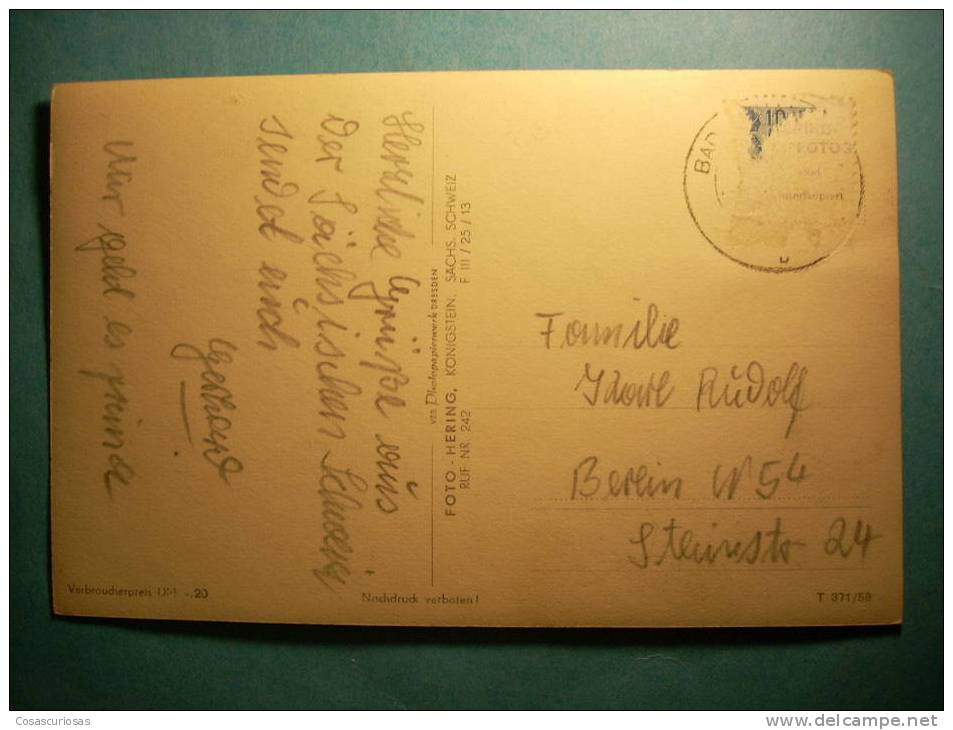 Herzliche Grüße aus
der Sächsischen Schweiz
sendet euch
Gerhard
Mir geld es prima
VEB Photopapierwerk DRESDEN
FOTO - HERING, KÖNIGSTEIN, SÄCHS. SCHWEIZ
RUF NR. 242 F III / 25 / 13
BAD
10
FOTOS
Familie
Karl Rudolf
Berlin N 54
Steinstr 24
Verbraucherpreis DM -.20
Nachdruck verboten!
T 371/58
Cosascuriosas
www.delcampe.net